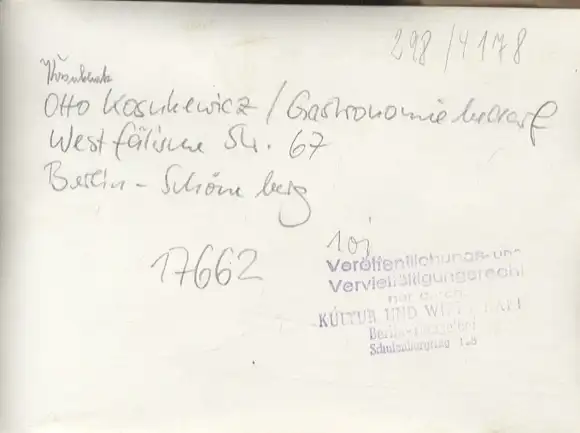 298/4178
Otto Kosukewicz / Gastronomiebedarf
Westfälische Str. 67
Berlin-Schöneberg
17662
Veröffentlichungs- und
Vervielfältigungsrecht
nur durch
KULTUR UND
Berlin-
Schulenburgring